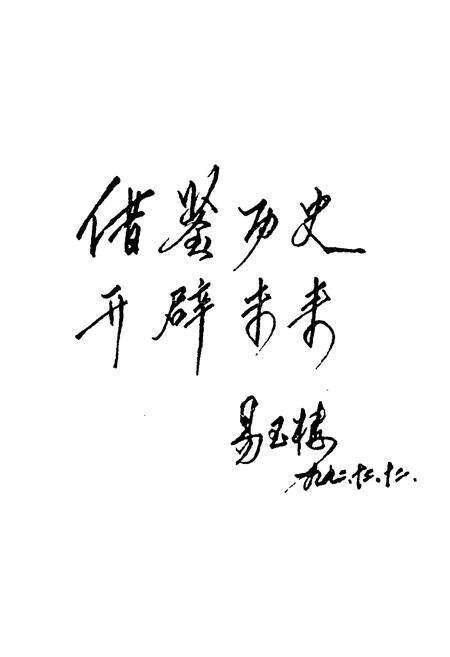 借鉴历史
开辟未来
易玉楼
九九二.十二.十二.